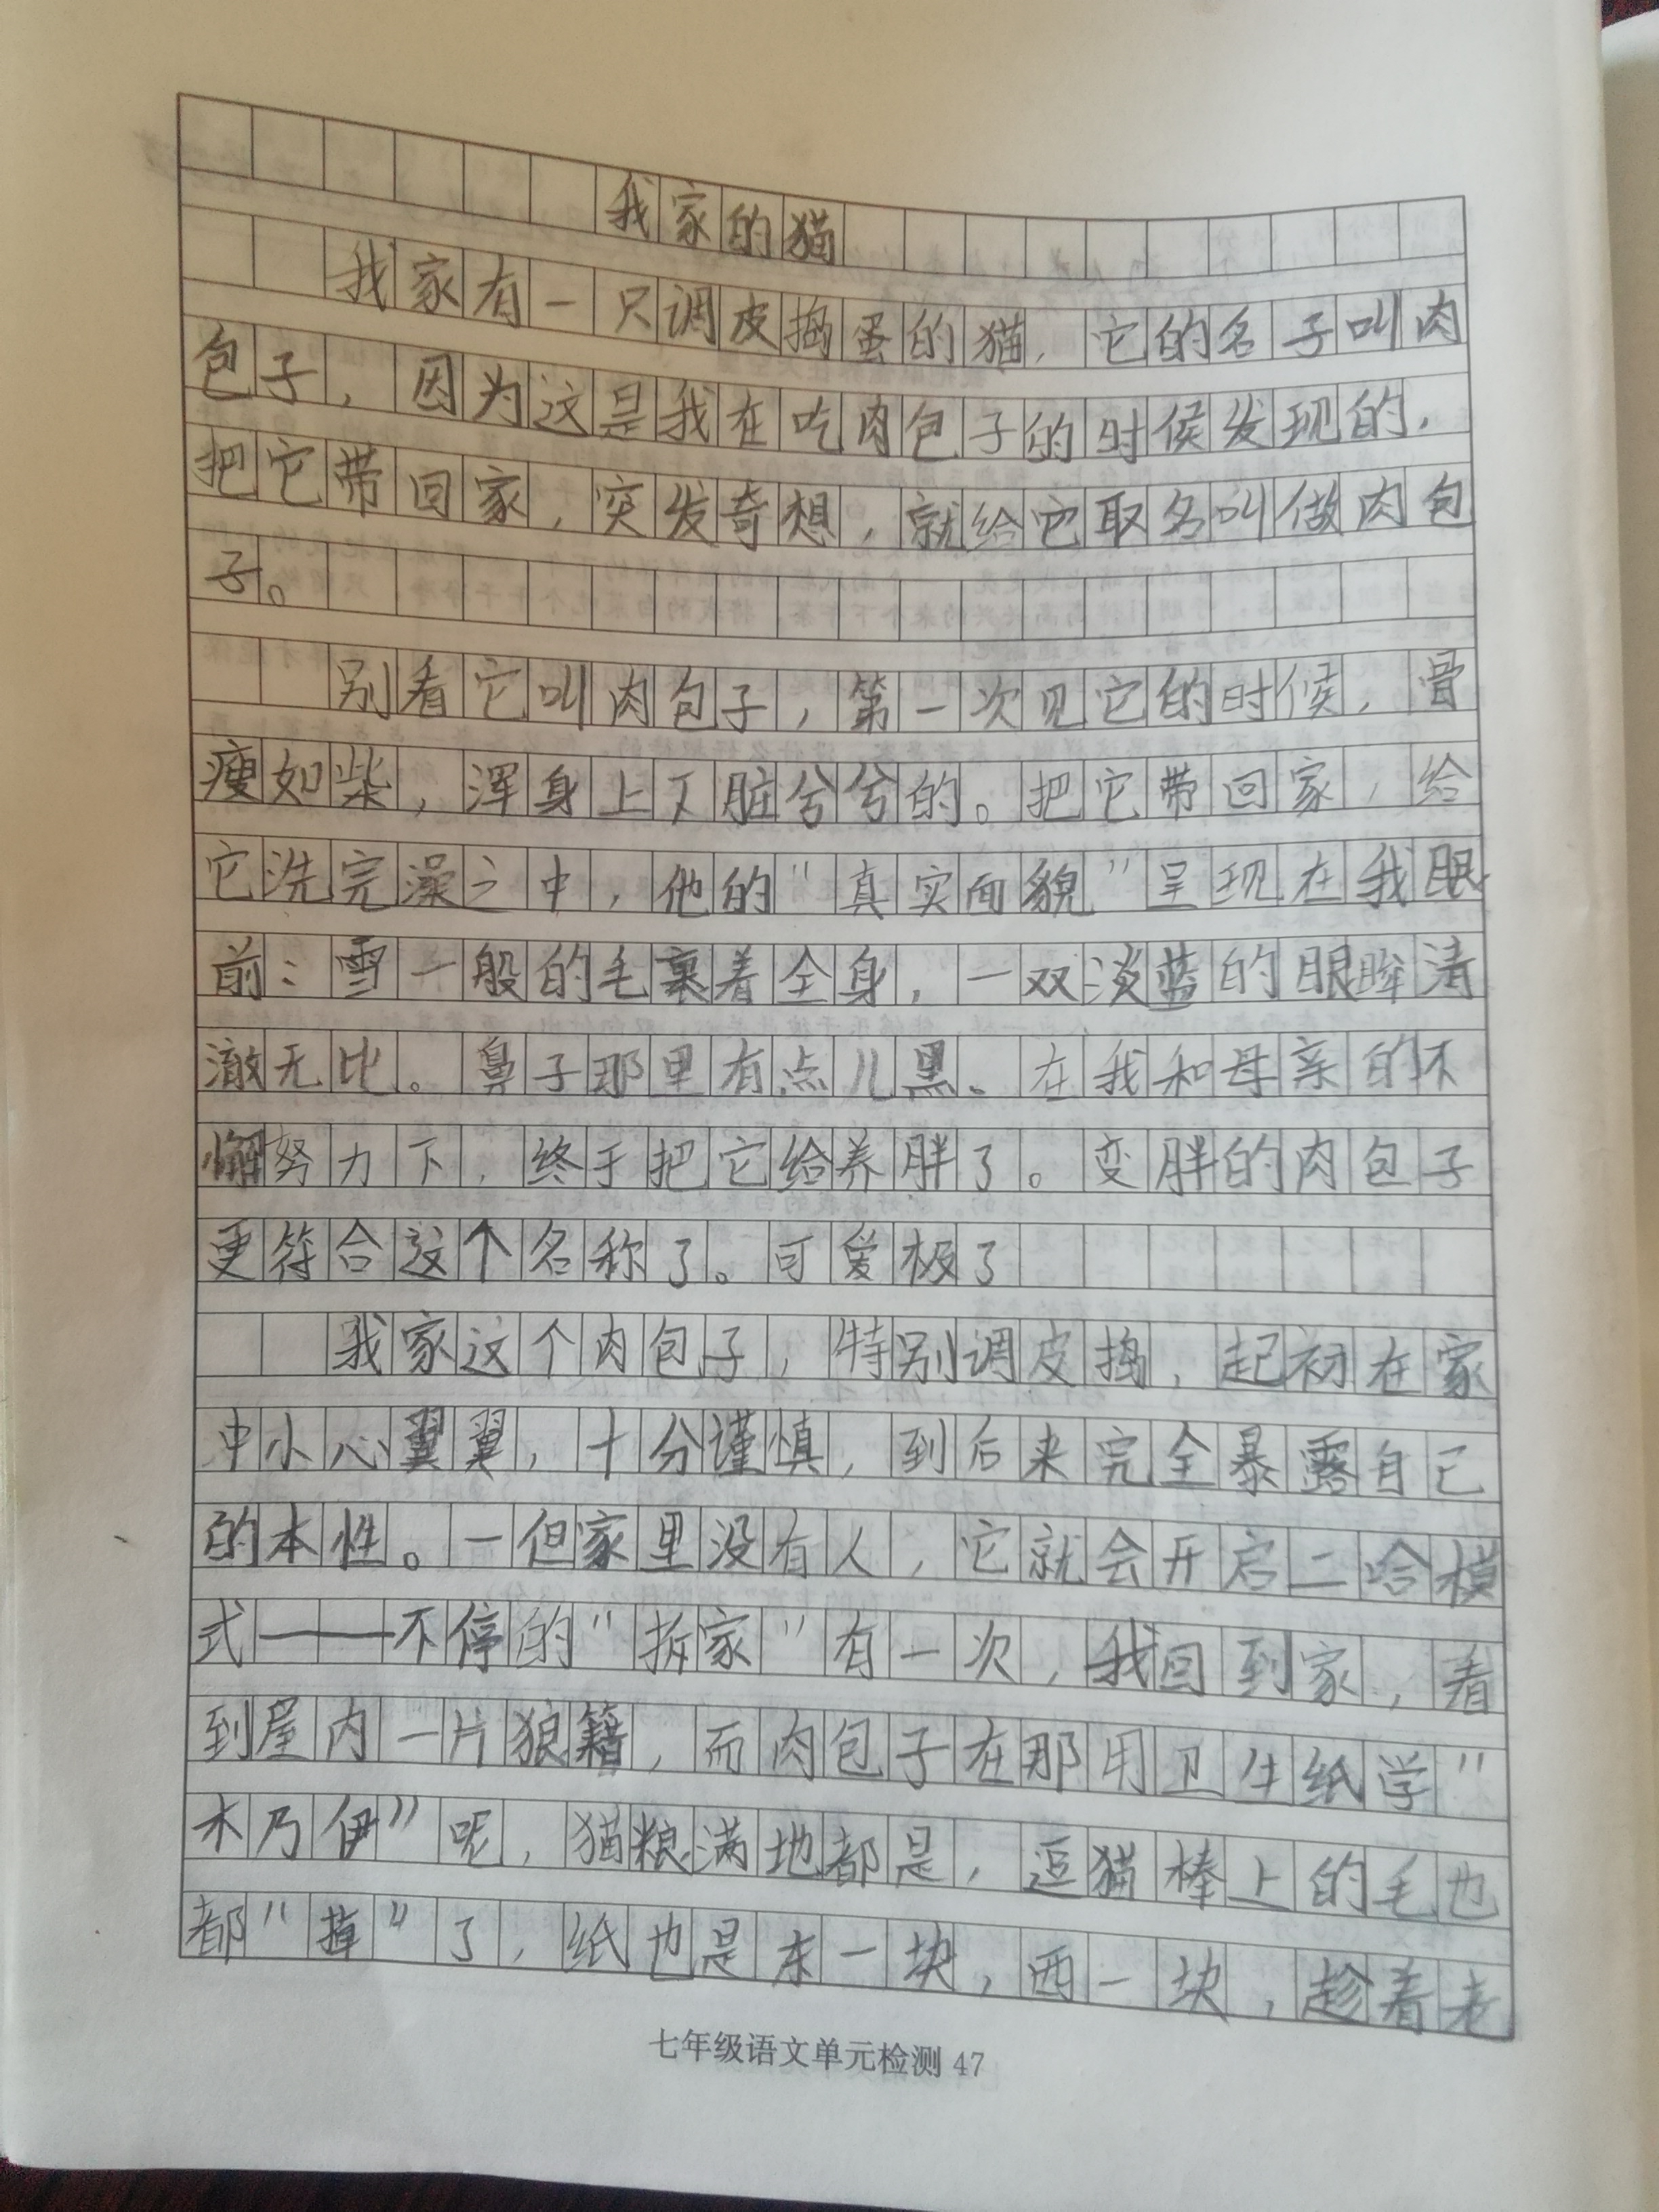 我家的猫
我家有一只调皮捣蛋的猫，它的名子叫肉
包子，因为这是我在吃肉包子的时候发现的，
把它带回家，突发奇想，就给它取名叫做肉包
子。
别看它叫肉包子，第一次见它的时候，骨
瘦如柴，浑身上下脏兮兮的。把它带回家，给
它洗完澡之中，他的“真实面貌”呈现在我眼
前：雪一般的毛裹着全身，一双淡蓝的眼眸清
澈无比。鼻子那里有点儿黑、在我和母亲的不
懈努力下，终于把它给养胖了。变胖的肉包子
更符合这个名称了。可爱极了
我家这个肉包子，特别调皮捣，起初在家
中小心翼翼，十分谨慎，到后来完全暴露自己
的本性。一但家里没有人，它就会开启二哈模
式——不停的“拆家”有一次，我回到家，看
到屋内一片狼籍，而肉包子在那用卫生纸学“
木乃伊”呢，猫粮满地都是，逗猫棒上的毛也
都“掉”了，纸也是东一块，西一块，趁着老
七年级语文单元检测 47